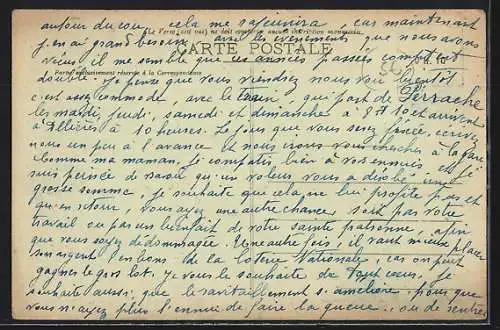 autour du cou, cela me rajeunira, car maintenant
(Le Verso (est vu) ne doit contenir aucune inscription manuscrite)
j'en ai grand besoin, avec les évènements que nous avons
CARTE POSTALE
vécu il me semble que ces années passés comptent
Partie exclusivement réservée à la Correspondance
double. Je pense que vous viendrez nous voir bientôt
c'est assez commode, avec le train, qui part de Perrache
les mardi, jeudi, samedi et dimanche à 8h10 et arrivent
à 10 heures. Le jour que vous serez fixée, écrivez
nous un peu à l'avance et nous irons vous chercher à la gare
Comme ma maman. Je compatis bien à vos ennuis et je
suis peinée de savoir qu'un voleur vous a dérobé une
grosse somme, je souhaite que cela ne lui profite pas et
qu'en retour, vous ayez une autre chance soit par votre
travail ou par un bienfait de votre sainte patronne, afin
que vous soyez dédommagée. Une autre fois, il vaut mieux placer
son argent en bons de la loterie Nationale, car on peut
gagner le gros lot. Je vous le souhaite de tout cœur, je
souhaite aussi que le ravitaillement s'améliore pour que
vous n'ayez plus l'ennui de faire la queue, ou de rentrer